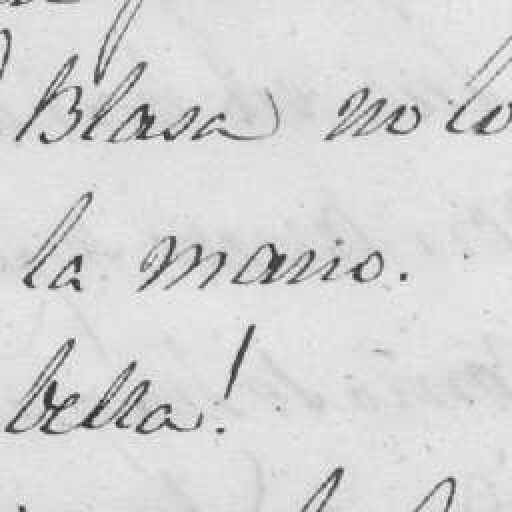 Blasa no lo
la mano.
bella!